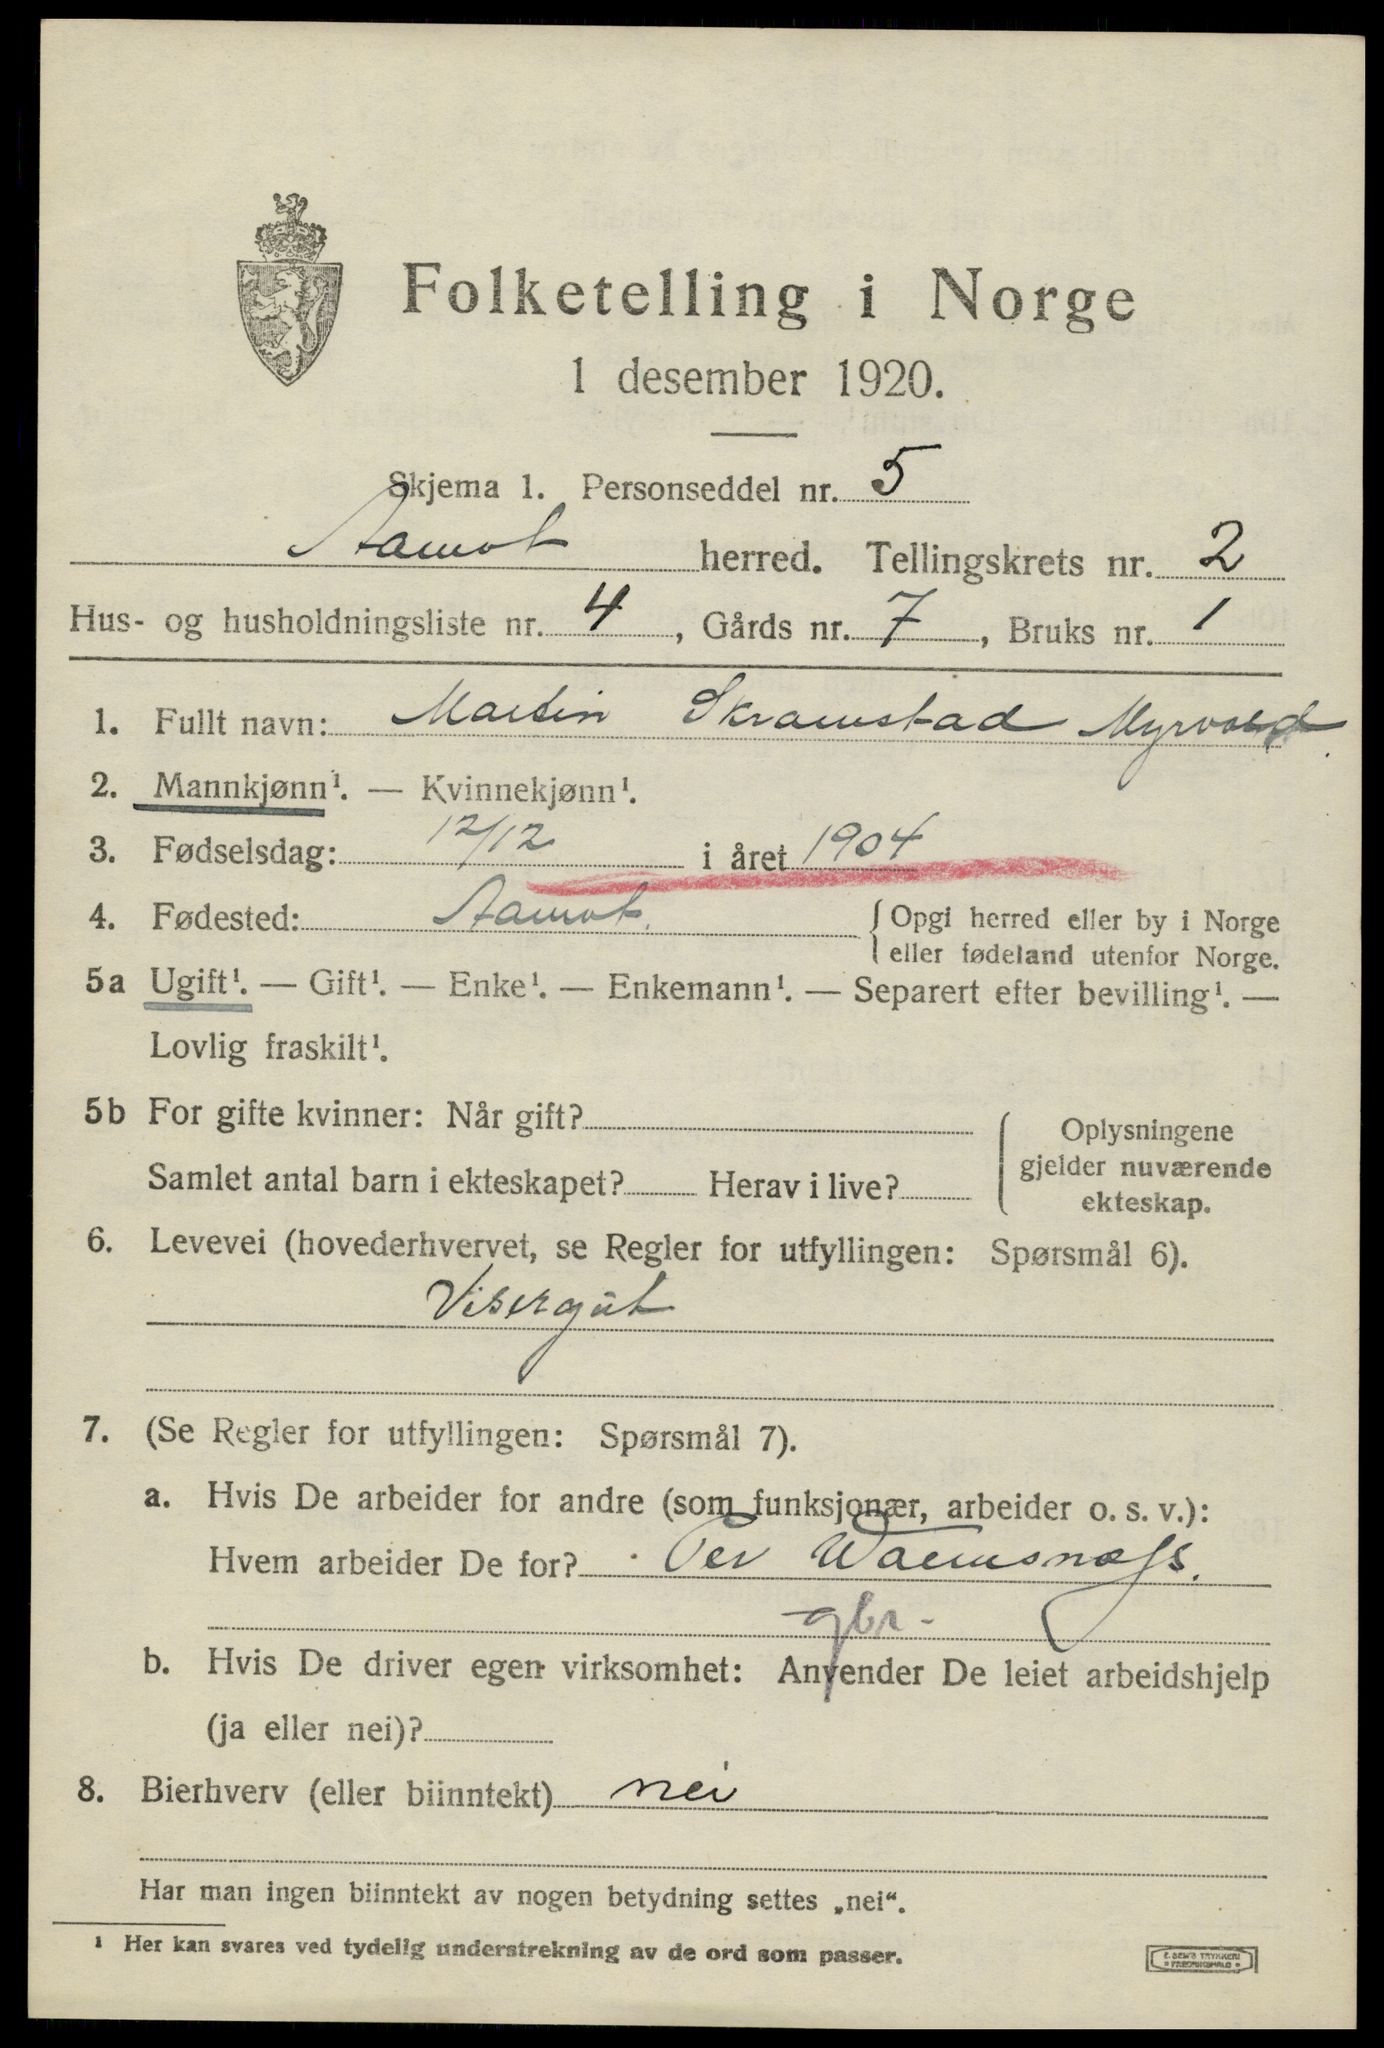 Folketelling i Norge
1 desember 1920.
Skjema 1. Personseddel nr. 5
Aamot herred. Tellingskrets nr. 2
Hus- og husholdningsliste nr. 4, Gårds nr. 7, Bruks nr. 1
1. Fullt navn: Martin Skramstad Myrvold
2. Mannkjønn¹. — Kvinnekjønn¹.
3. Fødselsdag: 12/12 i året 1904
4. Fødested: Aamot. Opgi herred eller by i Norge
eller fødeland utenfor Norge.
5a Ugift¹. — Gift¹. — Enke¹. — Enkemann¹. — Separert efter bevilling¹. —
Lovlig fraskilt¹.
5b For gifte kvinner: Når gift? Oplysningene
gjelder nuværende
Samlet antal barn i ekteskapet? Herav i live? ekteskap.
6. Levevei (hovederhvervet, se Regler for utfyllingen: Spørsmål 6).
Visergut
7. (Se Regler for utfyllingen: Spørsmål 7).
a. Hvis De arbeider for andre (som funksjonær, arbeider o. s. v.):
Hvem arbeider De for? Per
gbr-
b. Hvis De driver egen virksomhet: Anvender De leiet arbeidshjelp
(ja eller nei)?
8. Bierhverv (eller biinntekt) nei
Har man ingen biinntekt av nogen betydning settes „nei“.
¹ Her kan svares ved tydelig understrekning av de ord som passer.
E. SEMS TRYKKERI
FREDRIKSHALD